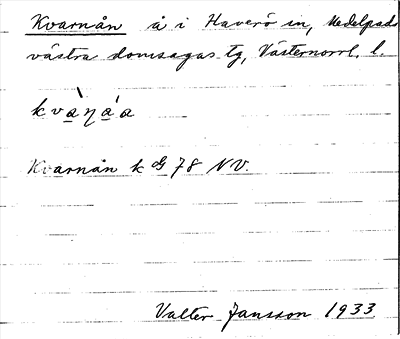 Kvarnån å i Haverö sn, Medelpads
västra domsagas tg, Västernorrl. l.
kvàŋáa
Kvarnån k dG 78 NV.
Valter Jansson 1933